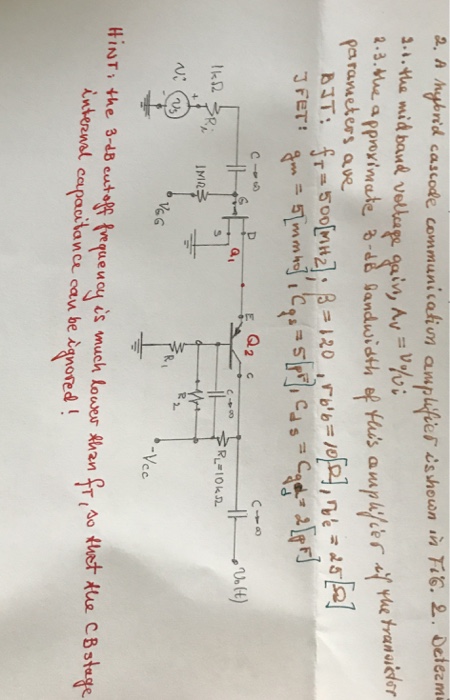 2. A hybrid cascode communication amplifier is shown in FIG. 2. Determi
2.1. the midband voltage gain, Av = Vo/Vi
2.3. the approximate 3-dB bandwidth of this amplifier if the transistor
parameters are
BJT: fT = 500[MHz], β = 120, rb'b = 10[Ω], rb'e = 25[Ω]
JFET: gm = 5[mmho], Cgs = 5[pF], Cds = Cgd = 2[pF]
1kΩ
Ri
Vi
+
-
Vs
C→∞
1MΩ
VGG
G
D
S
Q1
E
Q2
C
R1
R2
C→∞
RL=10kΩ
-Vcc
C→∞
Vo(t)
HINT: the 3-dB cutoff frequency is much lower than fT, so that the CB stage
internal capacitance can be ignored!